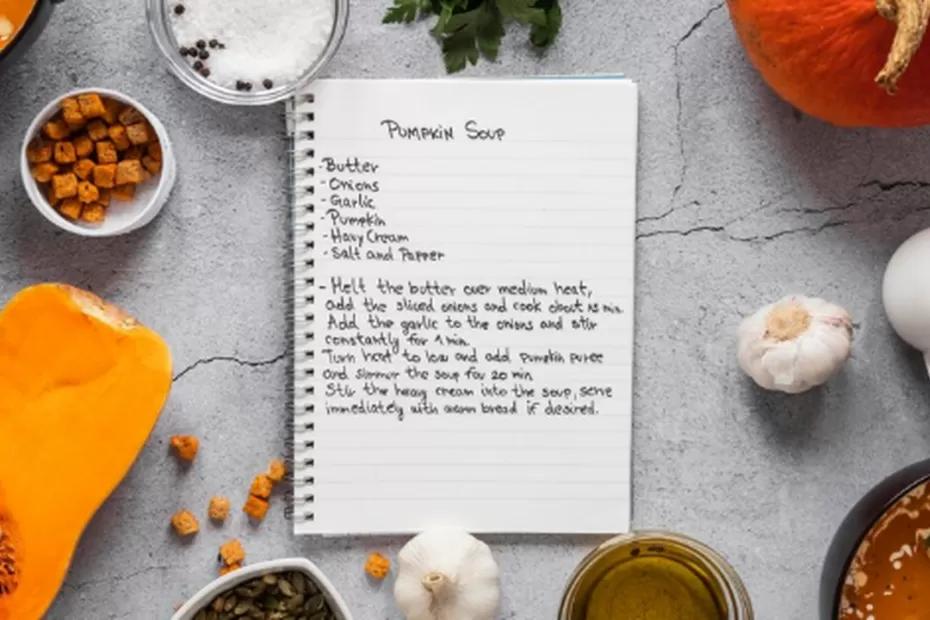 PUMPKIN SOUP
-Butter
- Onions
- Garlic
- Pumpkin
- Havy Cream
- Salt and Papper
- Melt the butter over medium heat,
add the sliced onions and cook about 15 min.
Add the garlic to the onions and stir
constantly for 1 min.
Turn heat to low and add pumpkin puree
and simmer the soup for 20 min
Stir the heavy cream into the soup, serve
immediately with warm bread if desired.